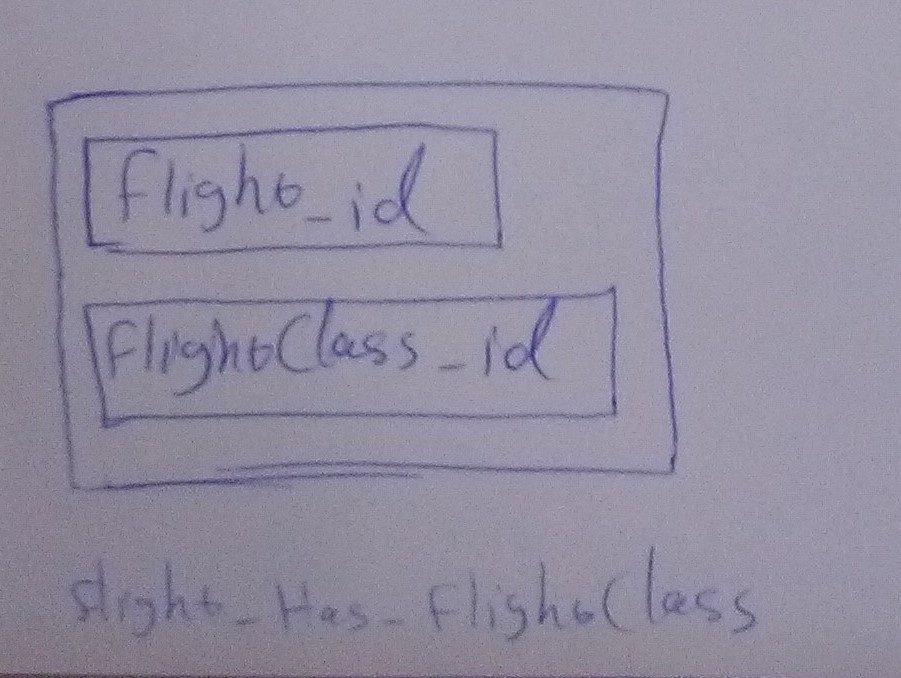 flight_id
FlightClass_id
flight_Has_FlightClass